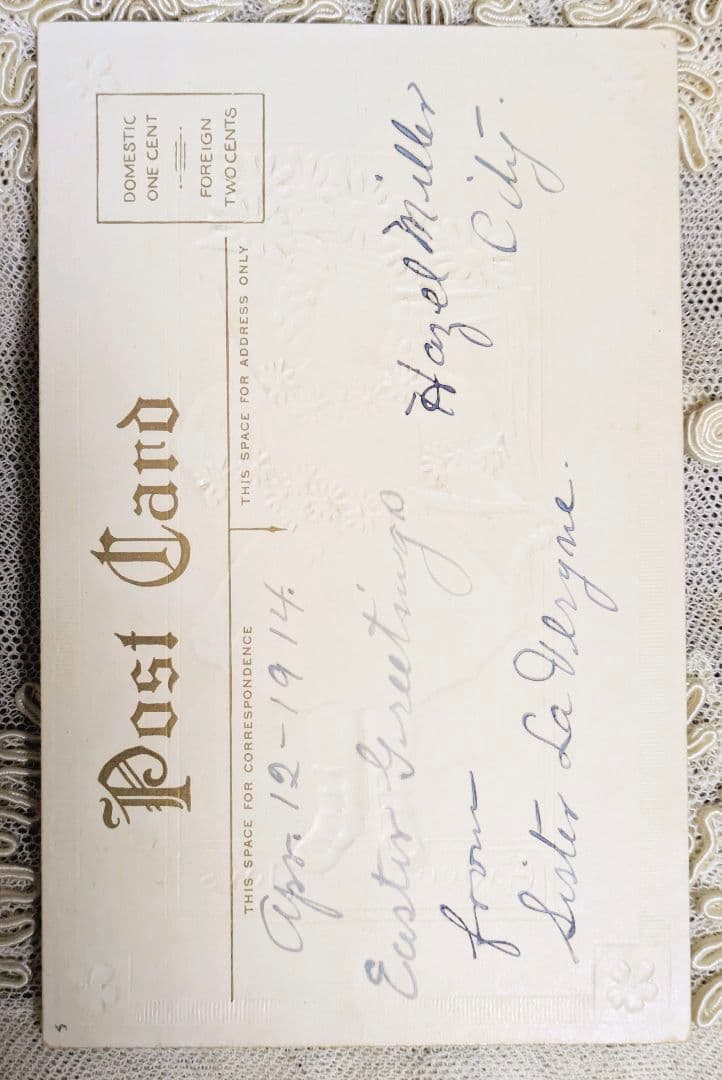 Post Card
DOMESTIC
ONE CENT
FOREIGN
TWO CENTS
THIS SPACE FOR CORRESPONDENCE
THIS SPACE FOR ADDRESS ONLY
Apr. 12-1914.
Easter Greetings
from
Sister La Vergne.
Hazel Miller
City.
5